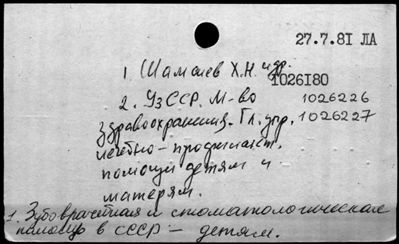 27.7.81 ЛА
1. Шамаев Х.Н. и др.
1026180
2. УзССР. М-во 1026226
здравоохранения. Гл. упр. 1026227
лечебно-профилакт.
помощи детям и
матерям.
1. Зубоврачебная и стоматологическая
помощь в СССР - детям.